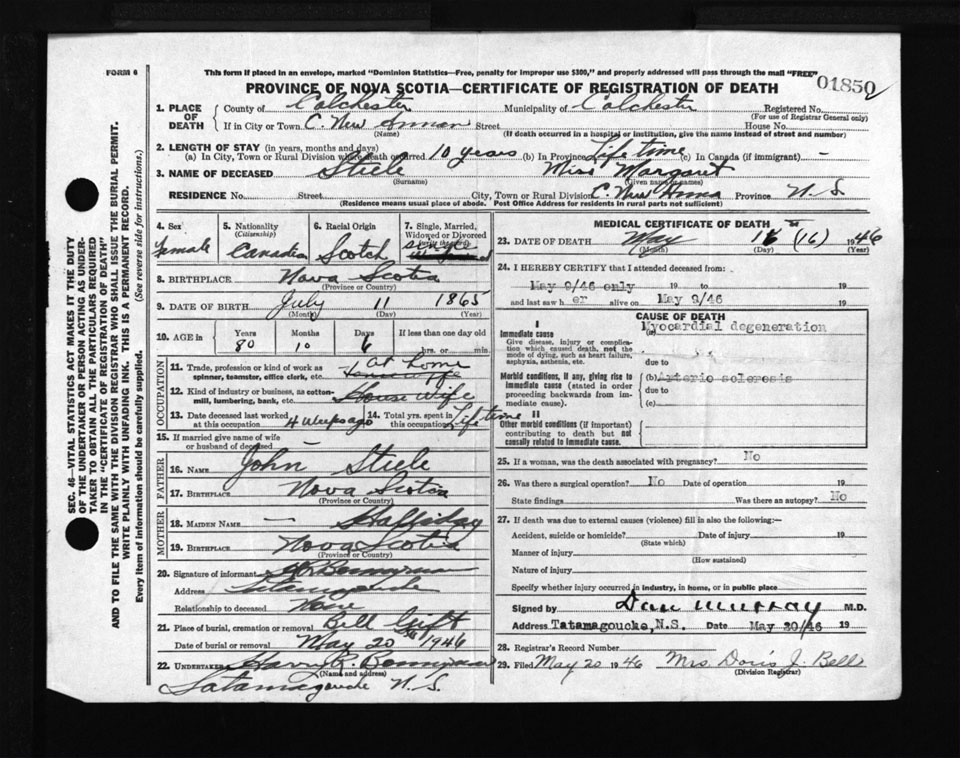 FORM 6
This form if placed in an envelope, marked "Dominion Statistics—Free, penalty for improper use $300," and properly addressed will pass through the mail "FREE"
PROVINCE OF NOVA SCOTIA—CERTIFICATE OF REGISTRATION OF DEATH
01850
1. PLACE OF DEATH
County of Colchester Municipality of Colchester Registered No.
(For use of Registrar General only)
If in City or Town C. New Annan Street House No.
(Name) (If death occurred in a hospital or institution, give the name instead of street and number)
2. LENGTH OF STAY (in years, months and days)
(a) In City, Town or Rural Division where death occurred 10 years (b) In Province Life time (c) In Canada (if immigrant) —
3. NAME OF DECEASED Stiele Miss Margaret
(Surname) (Given name or names)
RESIDENCE No. Street City, Town or Rural Division C. New Anna Province N.S.
(Residence means usual place of abode. Post Office Address for residents in rural parts not sufficient)
4. Sex Female
5. Nationality (Citizenship) Canadian
6. Racial Origin Scotch
7. Single, Married, Widowed or Divorced (write the word) Single
8. BIRTHPLACE Nova Scotia
(Province or Country)
9. DATE OF BIRTH July 11 1865
(Month) (Day) (Year)
10. AGE in Years Months Days If less than one day old
80 10 6 hrs. or min.
OCCUPATION
11. Trade, profession or kind of work as spinner, teamster, office clerk, etc. at home
12. Kind of industry or business, as cotton-mill, lumbering, bank, etc. House Wife
13. Date deceased last worked at this occupation 4 Weeks ago
14. Total yrs. spent in this occupation Life time
15. If married give name of wife or husband of deceased
FATHER
16. NAME John Stiele
17. BIRTHPLACE Nova Scotia
(Province or Country)
MOTHER
18. MAIDEN NAME —
19. BIRTHPLACE Nova Scotia
(Province or Country)
20. Signature of informant
Address Tatamagouche
Relationship to deceased None
21. Place of burial, cremation or removal Bell
Date of burial or removal May 20th 1946
22. UNDERTAKER Harry R.
(Name and address)
Tatamagouche N.S.
MEDICAL CERTIFICATE OF DEATH
23. DATE OF DEATH May 16 (16) 1946
(Month) (Day) (Year)
24. I HEREBY CERTIFY that I attended deceased from:
May 9/46 only 19 to 19
and last saw h er alive on May 9/46
CAUSE OF DEATH
I
Immediate cause (a) Myocardial degeneration
Give disease, injury or complication which caused death, not the mode of dying, such as heart failure, asphyxia, asthenia, etc.
due to
Morbid conditions, if any, giving rise to immediate cause (stated in order proceeding backwards from immediate cause).
(b) Arterio sclerosis
due to
(c)
II
Other morbid conditions (if important) contributing to death but not causally related to immediate cause.
25. If a woman, was the death associated with pregnancy? No
26. Was there a surgical operation? No Date of operation 19
State findings Was there an autopsy? No
27. If death was due to external causes (violence) fill in also the following:—
Accident, suicide or homicide? Date of injury 19
(State which)
Manner of injury
(How sustained)
Nature of injury
Specify whether injury occurred in industry, in home, or in public place
Signed by Dan Murray M.D.
Address Tatamagoucke, N.S. Date May 20/46 19
28. Registrar's Record Number
29. Filed May 20 1946 Mrs. Doris J. Bell
(Division Registrar)
SEC. 46—VITAL STATISTICS ACT MAKES IT THE DUTY
OF THE UNDERTAKER OR PERSON ACTING AS UNDER-
TAKER TO OBTAIN ALL THE PARTICULARS REQUIRED
IN THE "CERTIFICATE OF REGISTRATION OF DEATH"
AND TO FILE THE SAME WITH THE DIVISION REGISTRAR WHO SHALL ISSUE THE BURIAL PERMIT.
WRITE PLAINLY WITH UNFADING INK. THIS IS A PERMANENT RECORD.
Every item of information should be carefully supplied. (See reverse side for instructions.)